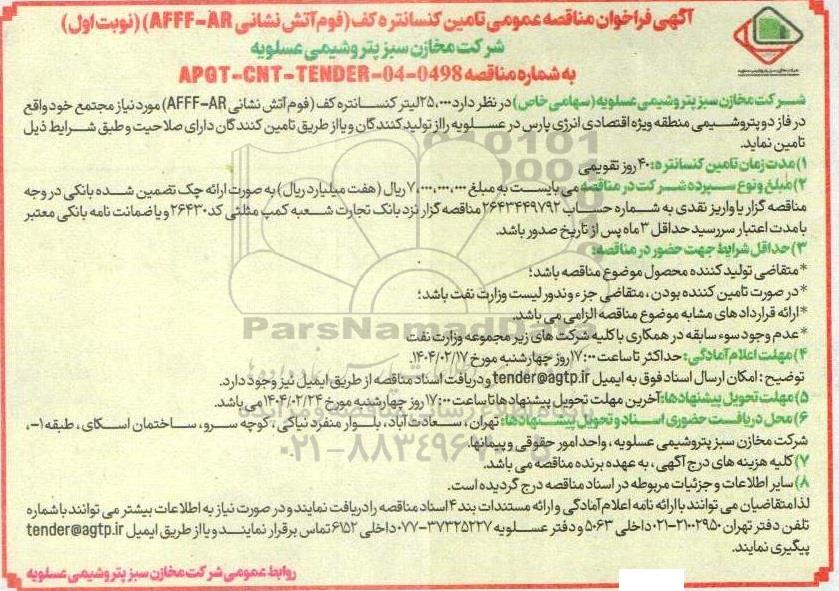 آگهی فراخوان مناقصه عمومی تامین کنسانتره کف (فوم آتش نشانی AFFF-AR) (نوبت اول)
شرکت مخازن سبز پتروشیمی عسلویه
به شماره مناقصه APGT-CNT-TENDER-04-0498
شرکت مخازن سبز پتروشیمی عسلویه (سهامی خاص) در نظر دارد ۲۵،۰۰۰ لیتر کنسانتره کف (فوم آتش نشانی AFFF-AR) مورد نیاز مجتمع خود واقع
در فاز دو پتروشیمی منطقه ویژه اقتصادی انرژی پارس در عسلویه را از تولید کنندگان و یا از طریق تامین کنندگان دارای صلاحیت و طبق شرایط ذیل
تامین نماید.
۱) مدت زمان تامین کنسانتره: ۴۰ روز تقویمی
۲) مبلغ و نوع سپرده شرکت در مناقصه می بایست به مبلغ ۷،۰۰۰،۰۰۰،۰۰۰ ریال (هفت میلیارد ریال) به صورت ارائه چک تضمین شده بانکی در وجه
مناقصه گزار یا واریز نقدی به شماره حساب ۲۶۴۳۴۴۹۷۹۲ مناقصه گزار نزد بانک تجارت شعبه کمپ مثلثی کد ۲۶۴۳۰ و یا ضمانت نامه بانکی معتبر
با مدت اعتبار سررسید حداقل ۳ ماه پس از تاریخ صدور باشد.
۳) حداقل شرایط جهت حضور در مناقصه:
*متقاضی تولید کننده محصول موضوع مناقصه باشد؛
*در صورت تامین کننده بودن، متقاضی جزء وندور لیست وزارت نفت باشد؛
*ارائه قراردادهای مشابه موضوع مناقصه الزامی می باشد.
*عدم وجود سوء سابقه در همکاری با کلیه شرکت های زیر مجموعه وزارت نفت
۴) مهلت اعلام آمادگی: حداکثر تا ساعت ۱۷:۰۰ روز چهارشنبه مورخ ۱۴۰۴/۰۲/۱۷.
توضیح: امکان ارسال اسناد فوق به ایمیل tender@agtp.ir و دریافت اسناد مناقصه از طریق ایمیل نیز وجود دارد.
۵) مهلت تحویل پیشنهادها: آخرین مهلت تحویل پیشنهادها تا ساعت ۱۷:۰۰ روز چهارشنبه مورخ ۱۴۰۴/۰۲/۲۴ می باشد.
۶) محل دریافت حضوری اسناد و تحویل پیشنهادها: تهران، سعادت آباد، بلوار منفرد نیاکی، کوچه سرو، ساختمان اسکای، طبقه ۱-،
شرکت مخازن سبز پتروشیمی عسلویه، واحد امور حقوقی و پیمانها.
۷) کلیه هزینه های درج آگهی، به عهده برنده مناقصه می باشد.
۸) سایر اطلاعات و جزئیات مربوطه در اسناد مناقصه درج گردیده است.
لذا متقاضیان می توانند با ارائه نامه اعلام آمادگی و ارائه مستندات بند ۴ اسناد مناقصه را دریافت نمایند و در صورت نیاز به اطلاعات بیشتر می توانند با شماره
تلفن دفتر تهران ۲۱۰۰۲۹۵۰-۰۲۱ داخلی ۵۰۶۳ و دفتر عسلویه ۳۷۳۲۵۲۲۷-۰۷۷ داخلی ۶۱۵۲ تماس برقرار نمایند و یا از طریق ایمیل tender@agtp.ir
پیگیری نمایند.
روابط عمومی شرکت مخازن سبز پتروشیمی عسلویه
ParsNamadData
۰۲۱-۸۸۳۴۹۶۷۰-۵